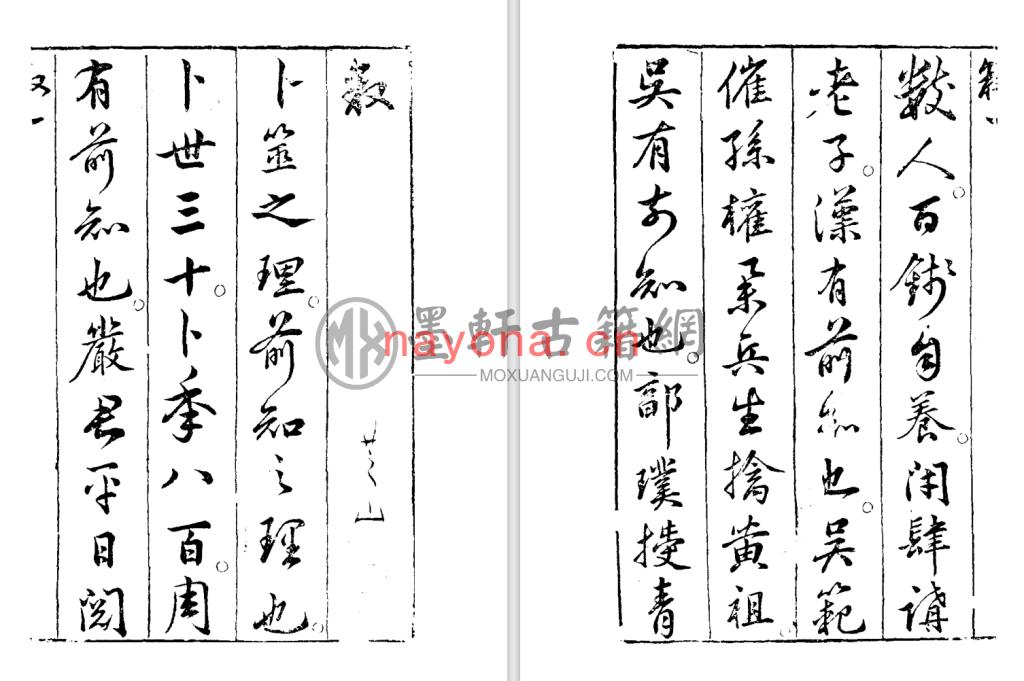 數
芝山
卜筮之理。前知之理也。
卜世三十。卜秊八百。周
有前知也。嚴君平日閱
數人。百錢自養。閉肆講
老子。漢有前知也。吳範
催孫權兵生擒黃祖。
吳有前知也。郭璞授青
墨軒古籍網
MOXUANGUJI.COM
nayona.cn